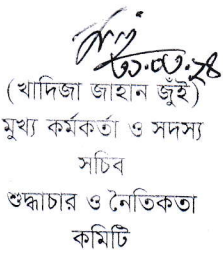 ৩১.০৩.২৪
(খাদিজা জাহান জুঁই)
মুখ্য কর্মকর্তা ও সদস্য
সচিব
শুদ্ধাচার ও নৈতিকতা
কমিটি